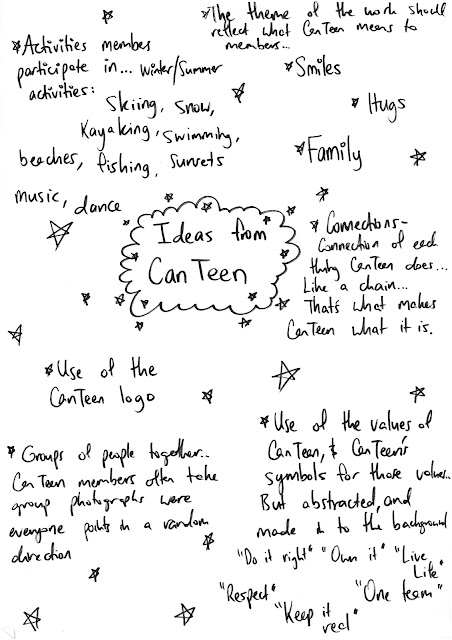 *Activities membes
participate in... Winter/Summer
activities:
Skiing, snow,
Kayaking, swimming,
beaches, fishing, sunsets
music, dance
*The theme of the work should
reflect what CanTeen means to
members...
*Smiles
*Hugs
*Family
Ideas from
CanTeen
*Connections-
Connection of each
thing CanTeen does...
Like a chain...
That's what makes
CanTeen what it is.
*Use of the
CanTeen logo
*Groups of people together..
CanTeen members often take
group photographs were
everyone points in a random
direction
*Use of the values of
CanTeen, & CanTeen's
symbols for those values..
But abstracted, and
made in to the background
"Do it right" "Own it" "Live
Life"
"Respect" "One team"
"Keep it
real"